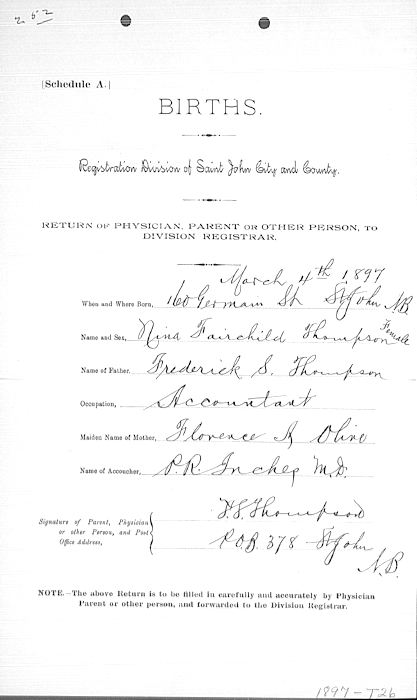 252
[Schedule A.]
BIRTHS.
Registration Division of Saint John City and County.
RETURN OF PHYSICIAN, PARENT OR OTHER PERSON, TO
DIVISION REGISTRAR.
March 4th 1897
When and Where Born, 160 Germain St. St John N.B.
Name and Sex, Nina Fairchild Thompson Female
Name of Father, Frederick S. Thompson
Occupation, Accountant
Maiden Name of Mother, Florence Olive
Name of Accoucher, P.R. Inches M.D.
Signature of Parent, Physician
or other Person, and Post
Office Address,
F.S. Thompson
P.O.B. 378 St John
N.B.
NOTE.—The above Return is to be filled in carefully and accurately by Physician
Parent or other person, and forwarded to the Division Registrar.
1897-T26